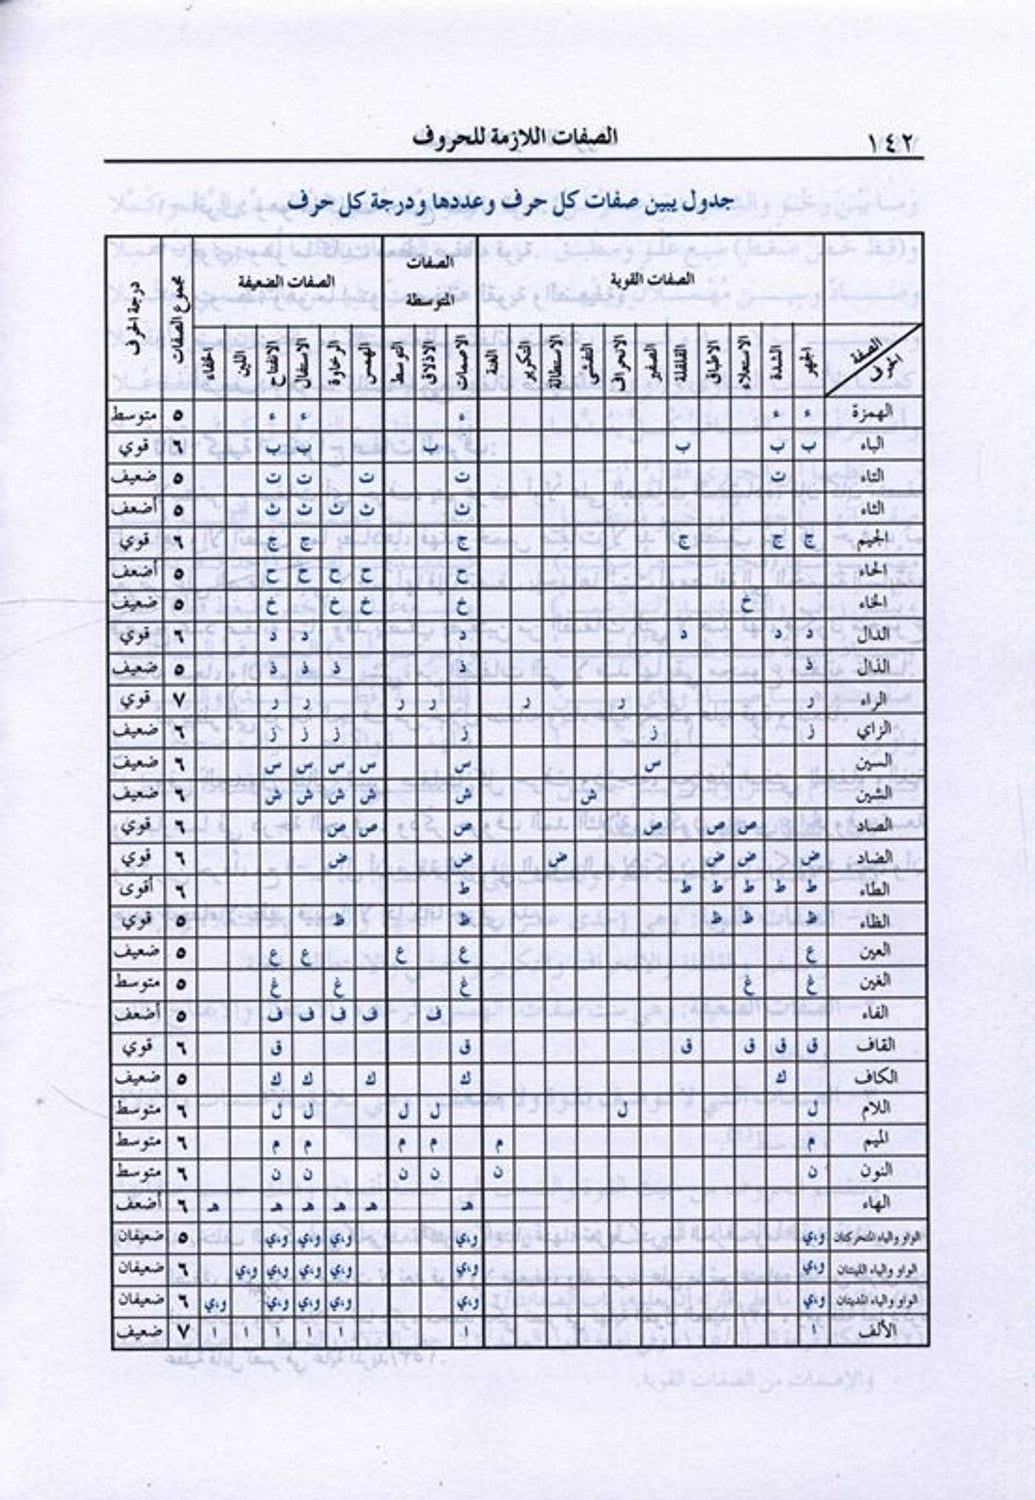 ١٤٢
الصفات اللازمة للحروف
جدول يبين صفات كل حرف وعددها ودرجة كل حرف
الصفات القوية الصفات المتوسطة الصفات الضعيفة مجموع الصفات درجة الحرف
الصفة الحرف الجهر الشدة الاستعلاء الاطباق القلقلة الصفير الانحراف التفشي الاستطالة التكرير الغنة الاصمات الاذلاق التوسط الهمس الرخاوة الاستفال الانفتاح اللين الخفاء
الهمزة ء ء ء ء ء ٥ متوسط
الباء ب ب ب ب ب ب ٦ قوي
التاء ت ت ت ت ت ٥ ضعيف
الثاء ث ث ث ث ث ٥ أضعف
الجيم ج ج ج ج ج ج ٦ قوي
الحاء ح ح ح ح ح ٥ أضعف
الخاء خ خ خ خ خ ٥ ضعيف
الدال د د د د د د ٦ قوي
الذال ذ ذ ذ ذ ذ ٥ ضعيف
الراء ر ر ر ر ر ر ر ٧ قوي
الزاي ز ز ز ز ز ز ٦ ضعيف
السين س س س س س س ٦ ضعيف
الشين ش ش ش ش ش ش ٦ ضعيف
الصاد ص ص ص ص ص ص ٦ قوي
الضاد ض ض ض ض ض ض ٦ قوي
الطاء ط ط ط ط ط ط ٦ أقوى
الظاء ظ ظ ظ ظ ظ ٥ قوي
العين ع ع ع ع ع ٥ ضعيف
الغين غ غ غ غ غ ٥ متوسط
الفاء ف ف ف ف ف ٥ أضعف
القاف ق ق ق ق ق ق ٦ قوي
الكاف ك ك ك ك ك ٥ ضعيف
اللام ل ل ل ل ل ل ٦ متوسط
الميم م م م م م م ٦ متوسط
النون ن ن ن ن ن ن ٦ متوسط
الهاء هـ هـ هـ هـ هـ هـ ٦ أضعف
الواو والياء المتحركتان و،ي و،ي و،ي و،ي و،ي ٥ ضعيفان
الواو والياء اللينتان و،ي و،ي و،ي و،ي و،ي و،ي ٦ ضعيفان
الواو والياء المديتان و،ي و،ي و،ي و،ي و،ي و،ي ٦ ضعيفان
الألف ا ا ا ا ا ا ا ٧ ضعيف